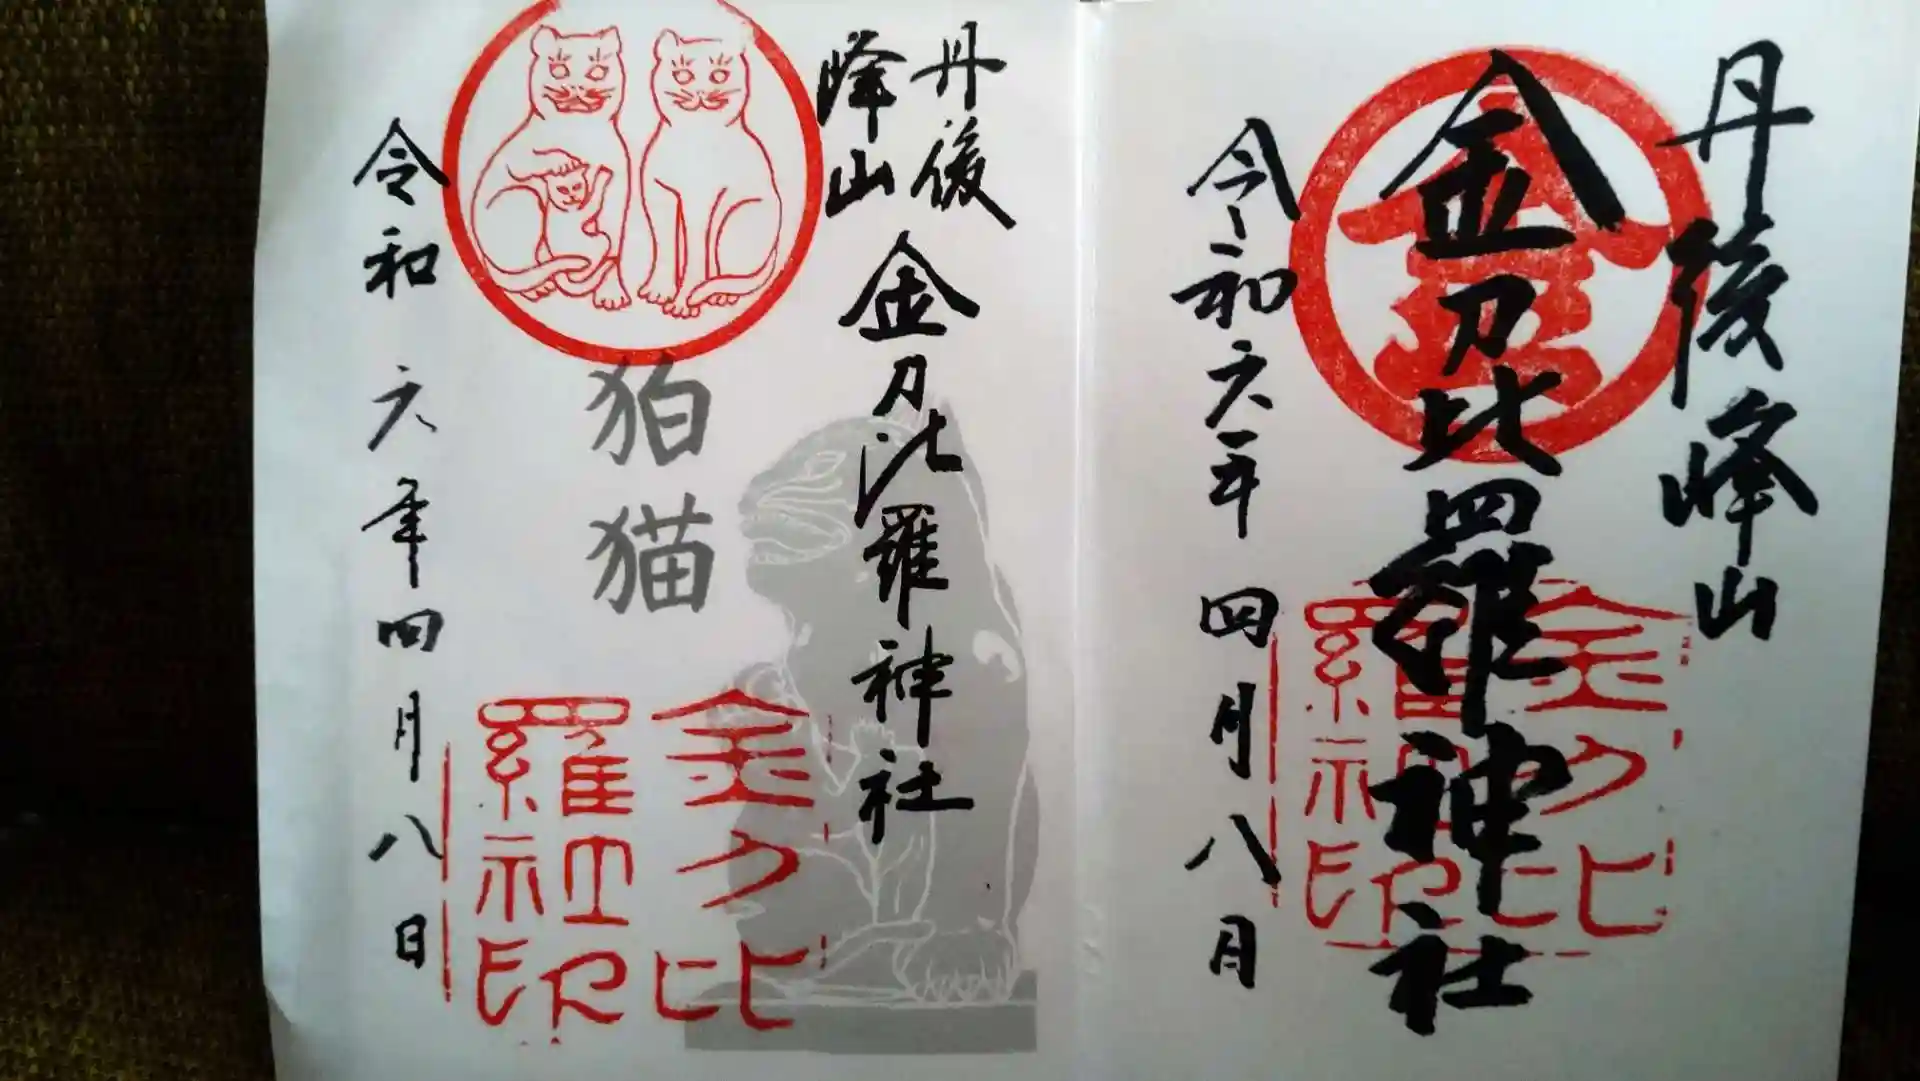 丹後峰山
金
金刀比羅神社
金刀比
羅神社印
令和六年四月八月
丹後
峰山
金刀比羅神社
狛猫
金刀比
羅神社印
令和六年四月八日